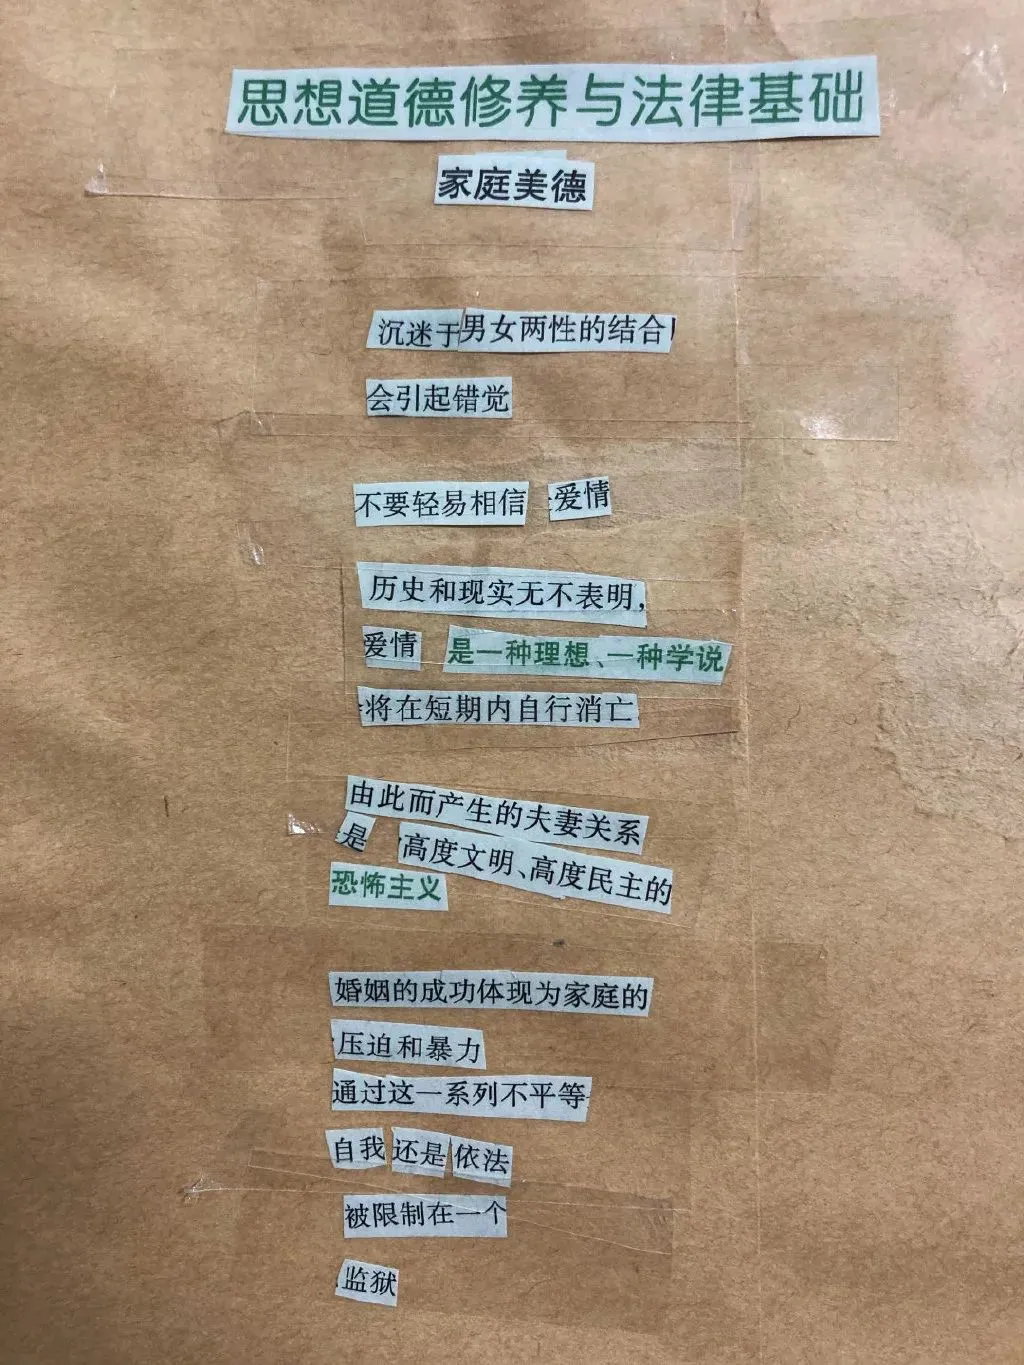 思想道德修养与法律基础
家庭美德
沉迷于男女两性的结合
会引起错觉
不要轻易相信 爱情
历史和现实无不表明，
爱情 是一种理想、一种学说
将在短期内自行消亡
由此而产生的夫妻关系
是 高度文明、高度民主的
恐怖主义
婚姻的成功体现为家庭的
压迫和暴力
通过这一系列不平等
自我 还是 依法
被限制在一个
监狱